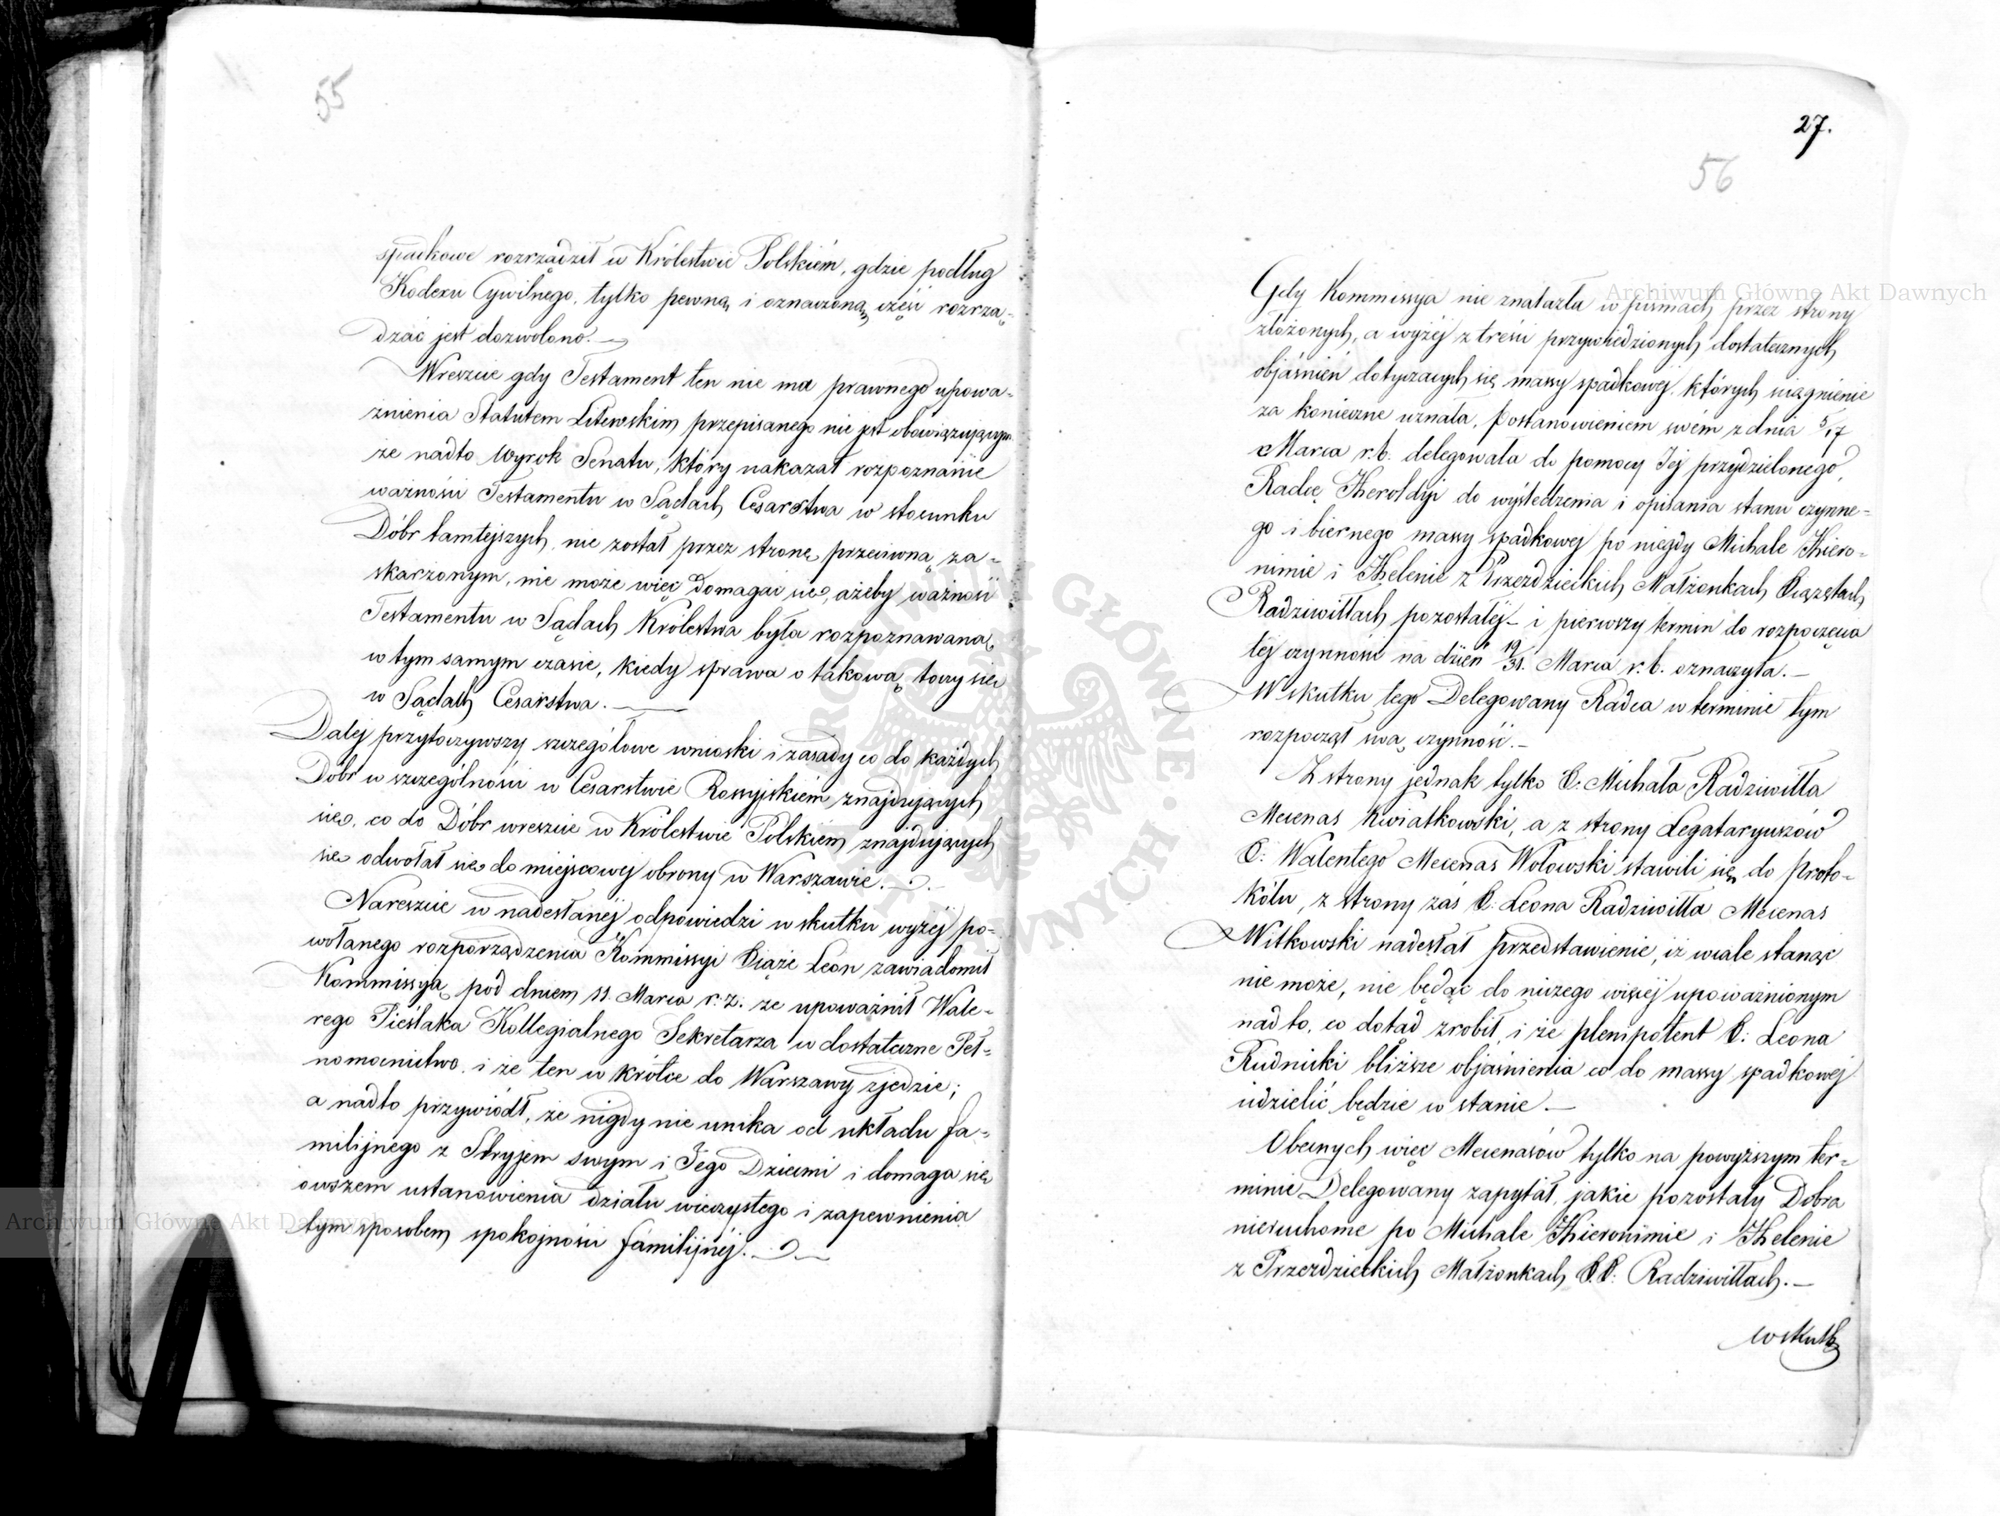 55
spadkowe rozrządził w Królestwie Polskiém, gdzie podług
Kodexu Cywilnego, tylko pewną i oznaczoną część rozrzą-
dzać jest dozwolono.—
Wreszcie gdy Testament ten nie ma prawnego upowa-
żnienia Statutem Litewskim przepisanego nie jest obowiązującym
że nadto Wyrok Senatu, który nakazał rozpoznanie
ważności Testamentu w Sądach Cesarstwa w stosunku
Dóbr tamtejszych, nie został przez stronę przeciwną za-
skarżonym, nie może więc domagać się, ażeby ważność
Testamentu w Sądach Królestwa była rozpoznawaną
w tym samym czasie, kiedy sprawa o takową toczy się
w Sądach Cesarstwa.—
Daléj przytoczywszy szczegółowe wnioski i zasady co do każdych
Dóbr w szczególności w Cesarstwie Rossyjskiém znajdujących
się, co do Dóbr wreszcie w Królestwie Polskiém znajdujących
się odwołał się do miejscowej obrony w Warszawie.—
Nareszcie w nadesłanéj odpowiedzi w skutku wyżéj po-
wołanego rozporządzenia Kommissyi Xiąże Leon zawiadomił
Kommissyą pod dniem 11. Marca r. z. że upoważnił Wale-
rego Pieślaka Kollegialnego Sekretarza w dostateczne Peł-
nomocnictwo, i że ten w krótce do Warszawy zjedzie;
a nadto przywiódł, że nigdy nie unika od układu fa-
milijnego z Stryjem swym i Jego Dziećmi i domaga się
owszem ustanowienia działu wieczystego i zapewnienia
tym sposobem spokojności familijnéj.—
27.
56
Gdy Kommissya nie znalazła w pismach przez strony
złożonych, a wyżéj z treści przywiedzionych dostatecznych
objaśnień dotyczących się massy spadkowéj, których ściągnienie
za konieczne uznała, Postanowieniem swém z dnia 5/17
Marca r. b. delegowała do pomocy Jéj przydzielonego,
Radcę Heroldyi do wyśledzenia i opisania stanu czynne-
go i biernego massy spadkowéj po niegdy Michale Hiero-
nimie i Helenie z Przezdzieckich Małżonkach Xiążętach
Radziwiłłach pozostałéj — i pierwszy termin do rozpoczęcia
téj czynności na dzień 19/31. Marca r. b. oznaczyła.—
W skutku tego Delegowany Radca w terminie tym
rozpoczął swą czynność.—
Z strony jednak tylko X: Michała Radziwiłła
Mecenas Kwiatkowski, a z strony Legataryuszów
X: Walentego Mecenas Wołowski stawili się do proto-
kółu, z strony zaś X: Leona Radziwiłła Mecenas
Witkowski nadesłał przedstawienie, iż wcale stanąć
nie może, nie będąc do niczego więcéj upoważnionym
nad to, co dotąd zrobił, i że plenipotent X: Leona
Rudnicki bliższe objaśnienia co do massy spadkowéj
udzielić będzie w stanie —
Obecnych więc Mecenasów tylko na powyższym ter-
minie Delegowany zapytał, jakie pozostały Dobra
nieruchome po Michale Hieronimie i Helenie
z Przezdzieckich Małżonkach X.X: Radziwiłłach.—
w skutku
Archiwum Główne Akt Dawnych
Archiwum Główne Akt Dawnych